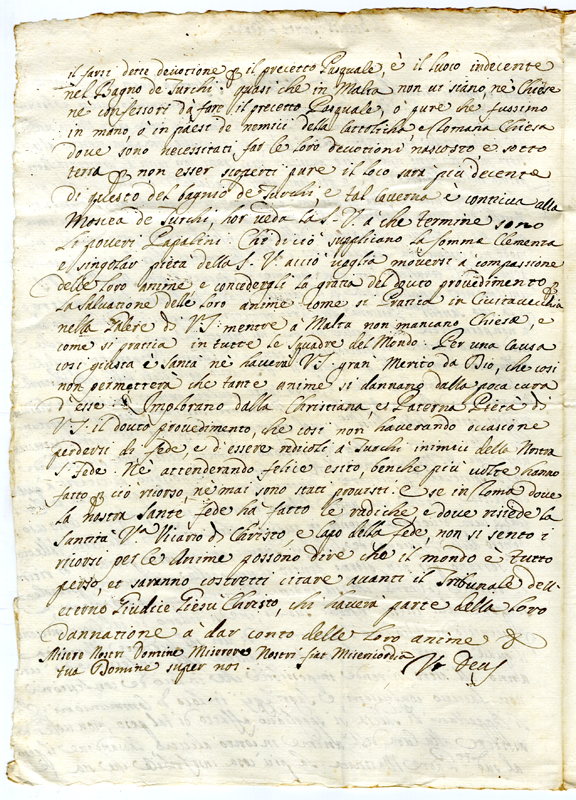 il farsi dette devotione & il precetto Pasquale, è il luoco indecente
nel Bagno de Turchi quasi che in Malta non vi siano, nè Chiese
nè confessori da fare il precetto Pasquale, o pure che fussimo
in mano, o in paese de nemici della Cattolicha e Romana Chiesa
dove sono necessitati far le loro devotioni nascosto, e sotto
terra & non esser scoperti pure il loco sarà più decente
di questo del bagnio de Turchi, e tal caverna è contigua alla
Moscea de Turchi, hor veda la S. V. à che termine sono
li poveri Papalini. Che di ciò supplicano la somma Clemenza
e singolar pietà della S. V. acciò voglia moversi a compassione
delle loro anime e concedergli la gratia del douto provedimento &
la salvatione delle loro anime come si pratica in Civitavecchia
nella Galere di V. S. mentre à Malta non mancano Chiese, e
come si pratica in tutte le squadre del Mondo. Per una causa
cosi giusta è santa nè haverà V. S. gran Merito da Dio, che cosi
non permetterà che tante anime si dannano dalla poca cura
d'esse. Implorano dalla Christiana, e Paterna Pietà di
V. S. il douto provedimento, che cosi non haverando occasione
perdersi di fede e d'essere redicoli à Turchi inimici della Nostra
S. Fede. Nè attenderando felice esito, benche più volte hanno
fatto & ciò ricorso, nè mai sono stati provisti. e se in Roma dove
la nostra Sante fede hà fatto le radiche, e dove risiede la
Santità Vra Vicario di Christo e capo della fede, non si sento i
ricorsi per le Anime possono dire che il mondo è tutto
perso, et saranno costretti citare avanti il Tribunale dell'
eterno Giudice Giesù Christo, chi haverà parte della loro
dannatione à dar conto delle loro anime &
Misere Nostri Domine Miserere Nostri fiat Misericordia
tua Domine super nos. Vt Deus